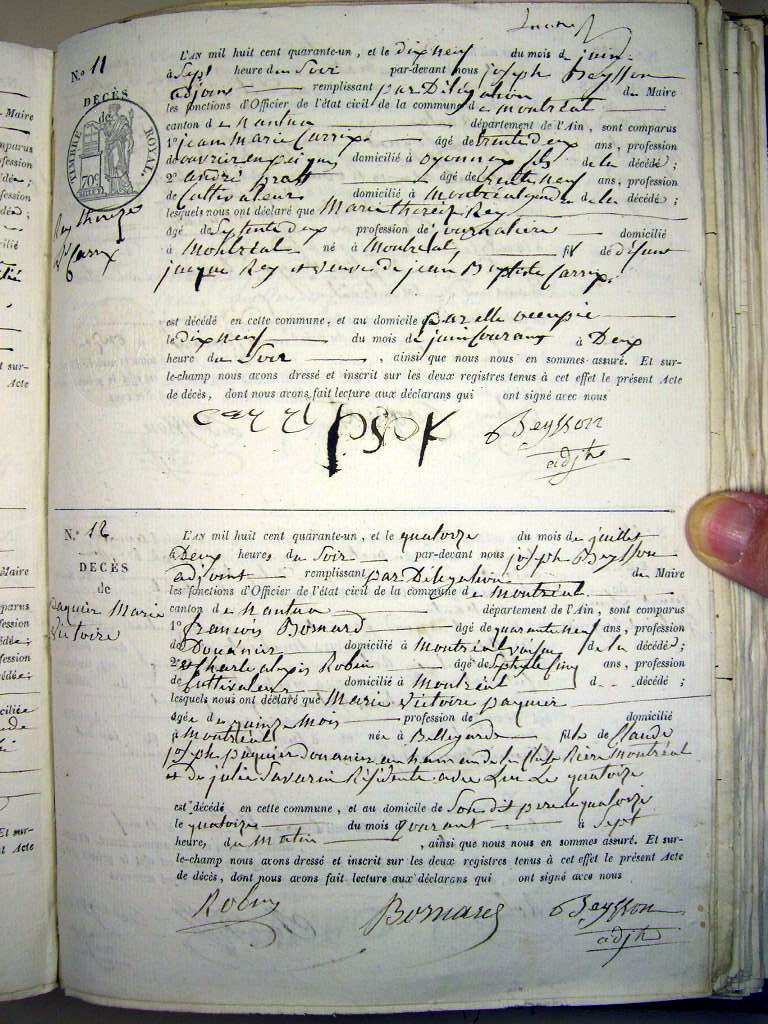 N.° 11
DÉCÈS
de
TIMBRE ROYAL
70c
Rey thérèze
Ve Carrix
L'AN mil huit cent quarante-un, et le dix neuf du mois de juin
à Sept heure du Soir par-devant nous joseph Beysson
adjoint remplissant par Délégation du Maire
les fonctions d'Officier de l'état civil de la commune de montréal
canton de Nantua département de l'Ain, sont comparus
1° jean Marie Carrix âgé de trente deux ans, profession
de ouvrier en peignes domicilié à oyonnax fils de la décédé;
2° andré âgé de trente neuf ans, profession
de Cultivateur domicilié à Montréal gendre de la décédé;
lesquels nous ont déclaré que Marie thereze Rey
agé de Septente deux profession de journalière domicilié
à Montréal né à Montréal fil de défunt
jacque Rey et veuve de jean Baptiste Carrix
est décédé en cette commune, et au domicile par elle occupée
le dix neuf du mois de juin Courant à Deux
heure du Soir , ainsi que nous nous en sommes assuré. Et sur-
le-champ nous avons dressé et inscrit sur les deux registres tenus à cet effet le présent Acte
de décès, dont nous avons fait lecture aux déclarans qui ont signé avec nous
Beysson
adjt
N.° 12
DÉCÈS
de
paquier Marie
Victoire
L'AN mil huit cent quarante-un, et le quatorze du mois de juillet
à Deux heures du Soir par-devant nous joseph Beysson
adjoint remplissant par Délégation du Maire
les fonctions d'Officier de l'état civil de la commune de montréal
canton de Nantua département de l'Ain, sont comparus
1° françois Bornard âgé de quarante neuf ans, profession
de Douanier domicilié à Montréal voisin de la décédé;
2° et Charle alexis Robin âgé de Septente Cinq ans, profession
de Cultivateur domicilié à Montréal d décédé;
lesquels nous ont déclaré que Marie Victoire paquier
agée de quinze Mois profession de domicilié
à Montréal née à Bellegarde fille de Claude
joseph paquier douanier au hameau de la Cluse Rière Montréal
et de julie Savarin Résidente avec Lui Le quatorze
est décédé en cette commune, et au domicile de Son dit pere le quatorze
le quatorze du mois Courant à Sept
heures du Matin , ainsi que nous nous en sommes assuré. Et sur-
le-champ nous avons dressé et inscrit sur les deux registres tenus à cet effet le présent Acte
de décès, dont nous avons fait lecture aux déclarans qui ont signé avec nous
Robin Bornard Beysson
adjt